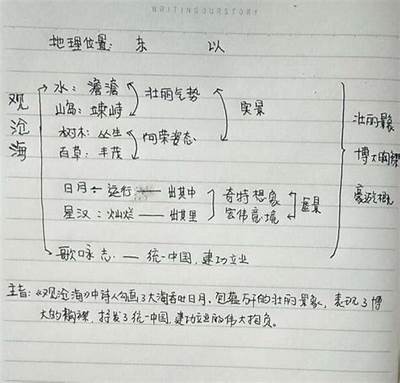 地理位置: 东 以
观沧海
水: 澹澹 壮丽气势
山岛: 竦峙
实景
树木: 丛生 向荣姿态
百草: 丰茂
日月 运行 出其中 奇特想象
星汉: 灿烂 出其里 宏伟意境
歌咏志 — 统一中国, 建功立业
壮丽景象
博大胸襟
主旨: 《观沧海》中诗人勾画了大海吞吐日月、包蕴万千的壮丽景象, 表现了博
大的胸襟, 抒发了统一中国, 建功立业的伟大抱负。